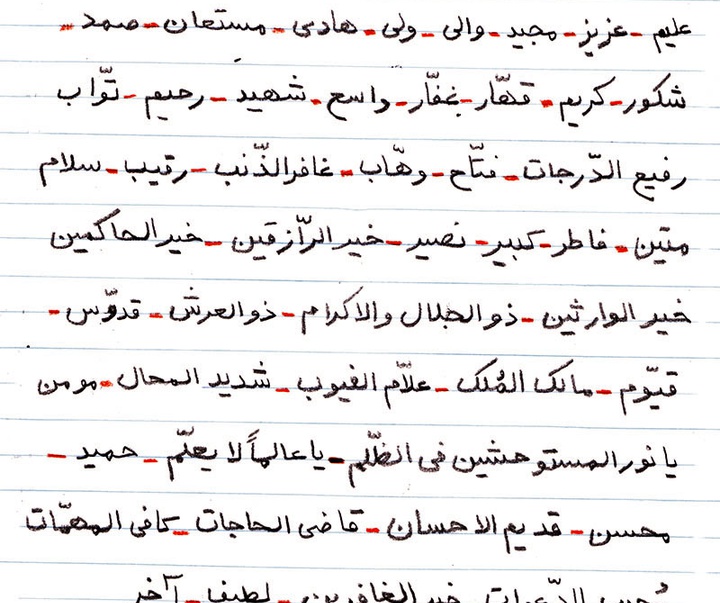 علیم - عزیز - مجید - والی - ولی - هادی - مستعان - صمد -
شکور - کریم - قهّار - غفّار - واسع - شهید - رحیم - توّاب
رفیع الدّرجات - فتّاح - وهّاب - غافرالذّنب - رقیب - سلام
متین - فاطر - کبیر - نصیر - خیرالرّازقین - خیرالحاکمین
خیر الوارثین - ذوالجلال والاکرام - ذوالعرش - قدّوس -
قیّوم - مالک المُلک - علّام الغیوب - شدید المحال - مومن
یا نورالمستوحشین فی الظّلم - یا عالماً لا یعلّم - حمید -
محسن - قدیم الاحسان - قاضی الحاجات - کافی المهمّات
مُجیب الدّعوات - خیرالغافرین - لطیف - آخر